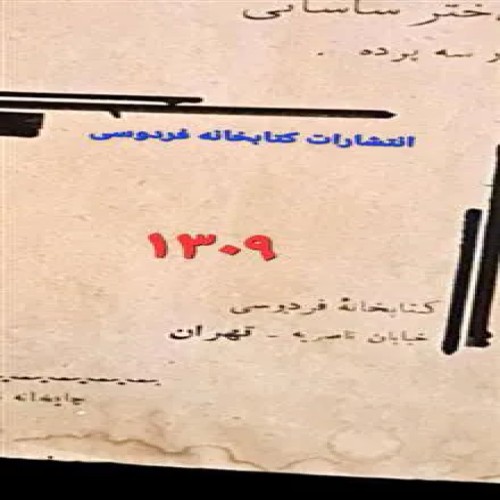 دختر ساسانی
در سه پرده .
انتشارات کتابخانه فردوسی
۱۳۰۹
کتابخانهٔ فردوسی
خیابان ناصریه - تهران
چاپخانه